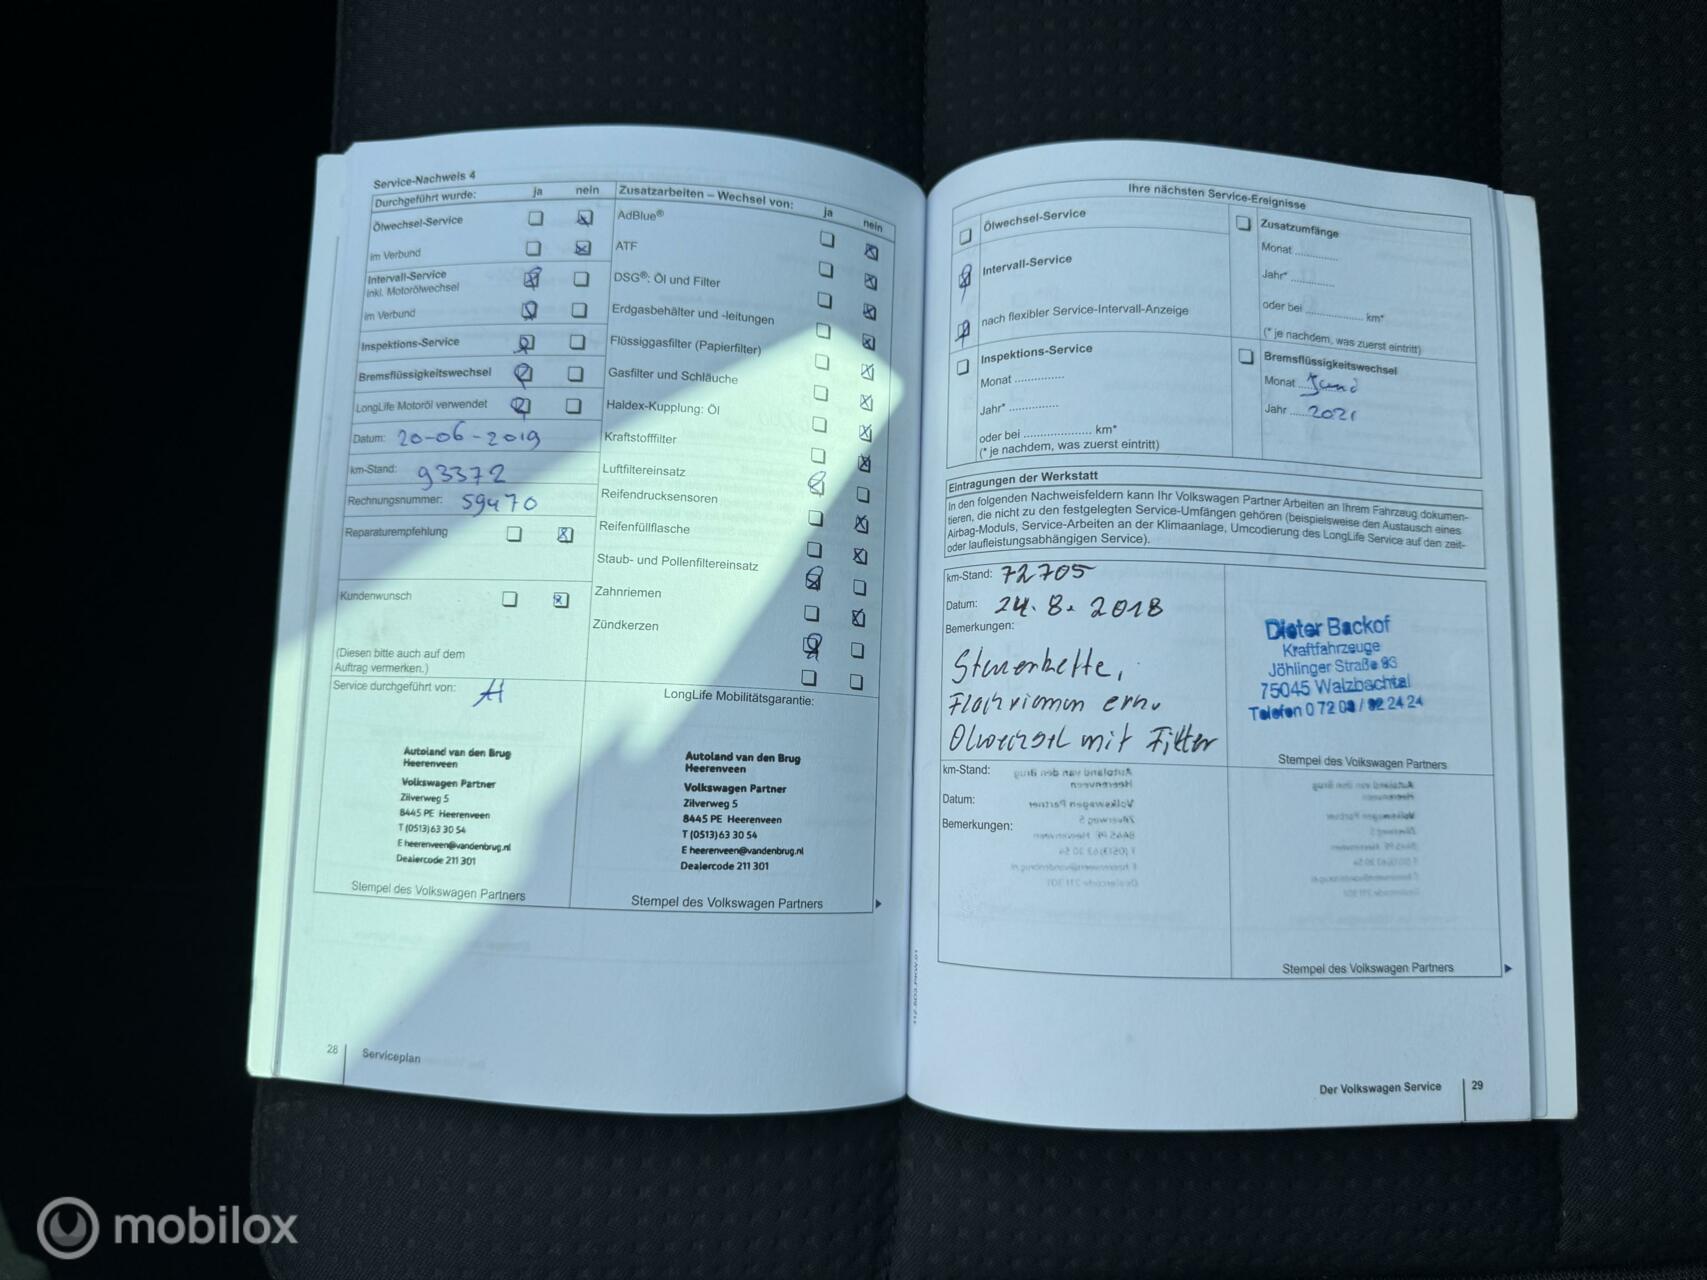 Service-Nachweis 4
Durchgeführt wurde: ja nein
Ölwechsel-Service
im Verbund
Intervall-Service
inkl. Motorölwechsel
im Verbund
Inspektions-Service
Bremsflüssigkeitswechsel
LongLife Motoröl verwendet
Datum: 20-06-2019
km-Stand: 93372
Rechnungsnummer: 59470
Reparaturempfehlung
Kundenwunsch
(Diesen bitte auch auf dem
Auftrag vermerken.)
Service durchgeführt von:
Autoland van den Brug
Heerenveen
Volkswagen Partner
Zilverweg 5
8445 PE Heerenveen
T (0513) 63 30 54
E heerenveen@vandenbrug.nl
Dealercode 211 301
Stempel des Volkswagen Partners
Zusatzarbeiten – Wechsel von: ja nein
AdBlue®
ATF
DSG®: Öl und Filter
Erdgasbehälter und -leitungen
Flüssiggasfilter (Papierfilter)
Gasfilter und Schläuche
Haldex-Kupplung: Öl
Kraftstofffilter
Luftfiltereinsatz
Reifendrucksensoren
Reifenfüllflasche
Staub- und Pollenfiltereinsatz
Zahnriemen
Zündkerzen
LongLife Mobilitätsgarantie:
Autoland van den Brug
Heerenveen
Volkswagen Partner
Zilverweg 5
8445 PE Heerenveen
T (0513) 63 30 54
E heerenveen@vandenbrug.nl
Dealercode 211 301
Stempel des Volkswagen Partners
28 Serviceplan
Ihre nächsten Service-Ereignisse
Ölwechsel-Service
Intervall-Service
nach flexibler Service-Intervall-Anzeige
Inspektions-Service
Monat ..............
Jahr* ..............
oder bei .................... km*
(* je nachdem, was zuerst eintritt)
Zusatzumfänge
Monat ............
Jahr* ............
oder bei ................ km*
(* je nachdem, was zuerst eintritt)
Bremsflüssigkeitswechsel
Monat
Jahr ..... 2021
Eintragungen der Werkstatt
In den folgenden Nachweisfeldern kann Ihr Volkswagen Partner Arbeiten an Ihrem Fahrzeug dokumen-
tieren, die nicht zu den festgelegten Service-Umfängen gehören (beispielsweise den Austausch eines
Airbag-Moduls, Service-Arbeiten an der Klimaanlage, Umcodierung des LongLife Service auf den zeit-
oder laufleistungsabhängigen Service).
km-Stand: 72705
Datum: 24.8.2018
Bemerkungen:
Steuerkette,
Flachriemen ern.
Ölwechsel mit Filter
Dieter Backof
Kraftfahrzeuge
Jöhlinger Straße 93
75045 Walzbachtal
Telefon 0 72 03 / 92 24 24
Stempel des Volkswagen Partners
km-Stand:
Datum:
Bemerkungen:
Stempel des Volkswagen Partners
Der Volkswagen Service 29
mobilox